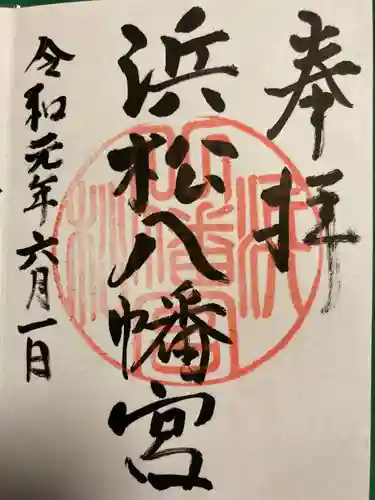 奉拝
浜松八幡宮
令和元年六月一日